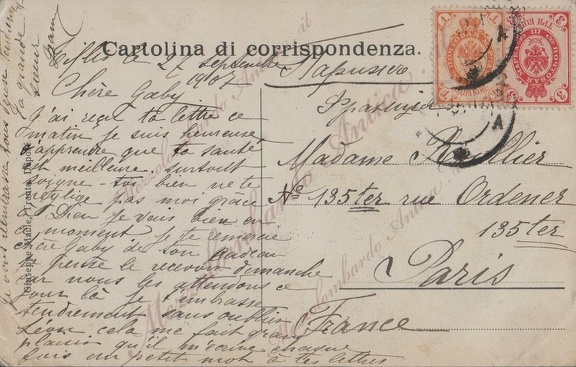 Cartolina di corrispondenza.
Tiflis le 27 septembre
1907
Chère Gaby
J'ai reçu ta lettre ce
matin je suis heureuse
d'apprendre que ta santé
est meilleure surtout
soigne-toi bien ne te
néglige pas moi grace
à Dieu je vais bien en
moment je te remercie
chère Gaby de ton cadeau
je pense le recevoir demanche
car nous les attendons ce
jour là je embrasse
tendrement sans oublier
Léone cela me fait grand
plaisir qu'il m'écrive chaque
fois un petit mot à tes lettres
Je vous
ta grande
sœur
Парижъ
Франція
Madame Rollier
Nº 135ter rue Ordener
135ter
Paris
France
1
1
3
3
A
A
Mezzo Lombardo Antica
Lombardo Antica